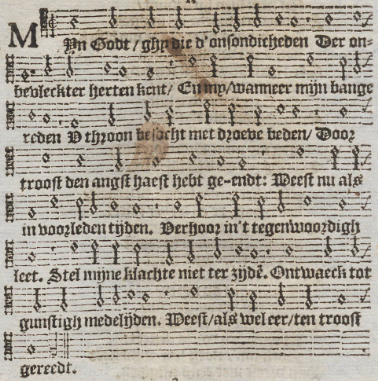 MYn Godt / ghy die d'onsondicheden Der on-
bevleckter herten kent / En my / wanneer mijn bange
reden V throon besocht met droeve beden / Door
troost den angst haest hebt ge-endt: Weest nu als
in voorleden tyden. Verhoor in't tegenwoordigh
leet. Stel mijne klachte niet ter zydē. Ontwaeck tot
gunstigh medelijden. Weest / als wel eer / ten troost
gereedt.